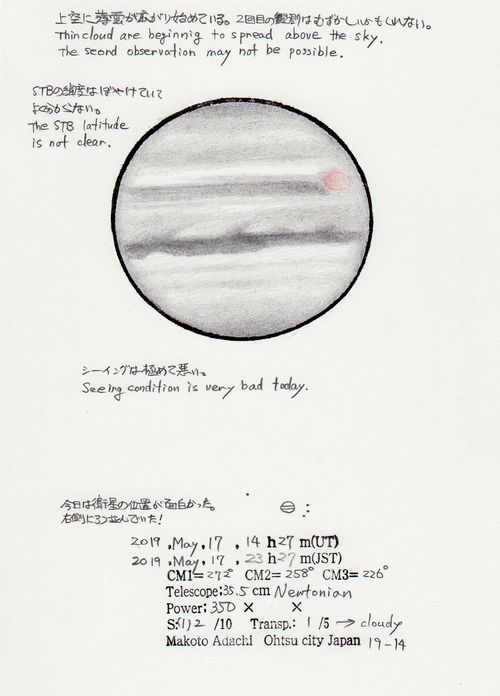 上空に薄雲が広がり始めている。2回目の観測はむずかしいかもしれない。
Thin cloud are beginnig to spread above the sky.
The seord observation may not be possible.
STBの緯度はぼやけていて
よく分からない。
The STB latitude
is not clear.
シーイングは極めて悪い。
Seeing condition is very bad today.
今日は衛星の位置が面白かった。
右側に3つ並んでいた!
2019 ,May, 17 , 14 h 27 m(UT)
2019 ,May, 17 , 23 h 27 m(JST)
CM1= 272° CM2= 258° CM3= 226°
Telescope: 35.5 cm Newtonian
Power: 350 × ×
S:(1) 2 /10 Transp.: 1 /5 → cloudy
Makoto Adachi Ohtsu city Japan 19-14